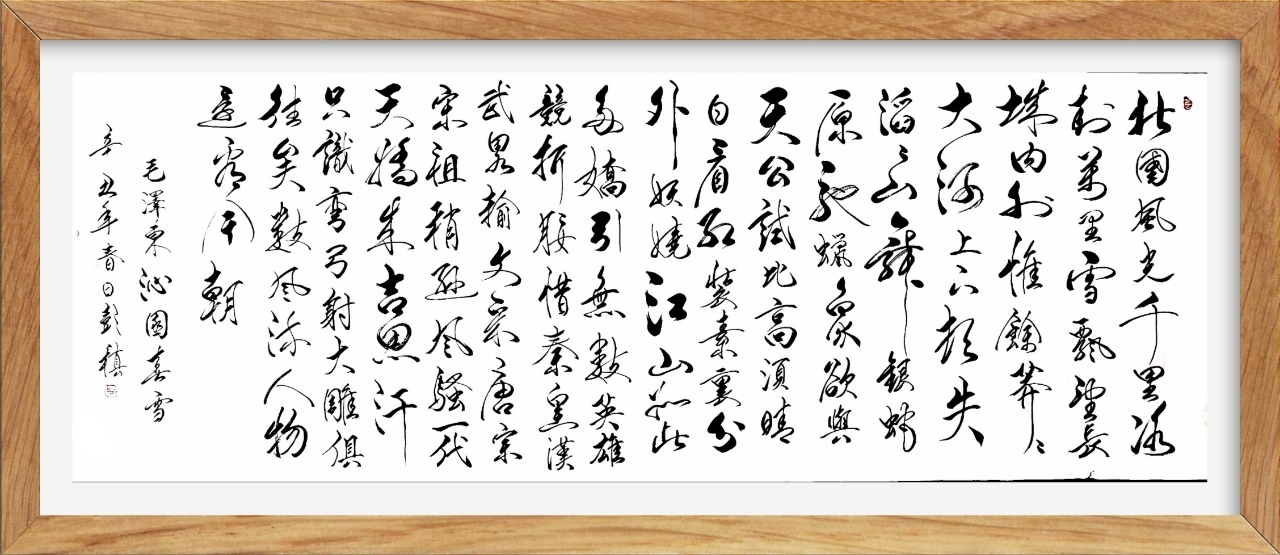 北國風光千里冰
封萬里雪飄望長
城内外惟餘莽〻
大河上下頓失
滔〻山舞銀蛇
原馳蠟象欲與
天公試比高須晴
日看紅裝素裹分
外妖嬈江山如此
多嬌引無數英雄
競折腰惜秦皇漢
武畧輸文采唐宗
宋祖稍遜風騷一代
天驕成吉思汗
只識彎弓射大雕俱
往矣數風流人物
還看今朝
毛澤東沁園春雪
辛丑年春日彭稹